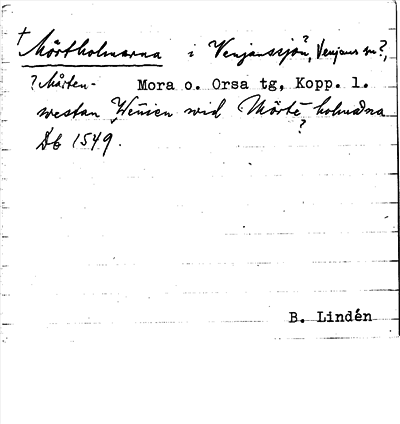 † Mörtholmarna i Venjanssjön?, Venjans sn?,
? Mårten- Mora o. Orsa tg, Kopp. l.
westan Wenien wid Mörte- holmana
?
Db 1549.
B. Lindén